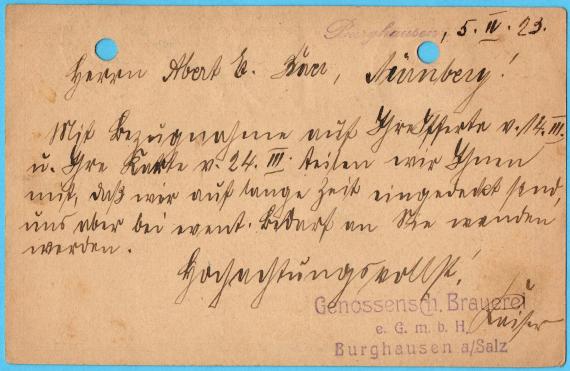 Burghausen, 5. IV. 23.
Herrn Abert E. Bär, Nürnberg!
Mit Bezugnahme auf Ihre Offerte v. 14. III.
u. Ihre Karte v. 24. III. teilen wir Ihnen
mit, daß wir auf lange Zeit eingedeckt sind,
uns aber bei event. Bedarf an Sie wenden
werden.
Hochachtungsvollst!
Genossensch. Brauerei
e. G. m. b. H.
Kaiser
Burghausen a/Salz